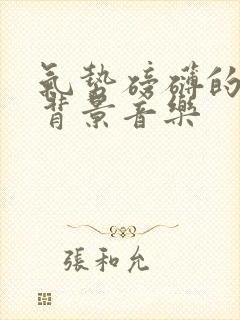 氣勢磅礴的
背景音樂
張和允